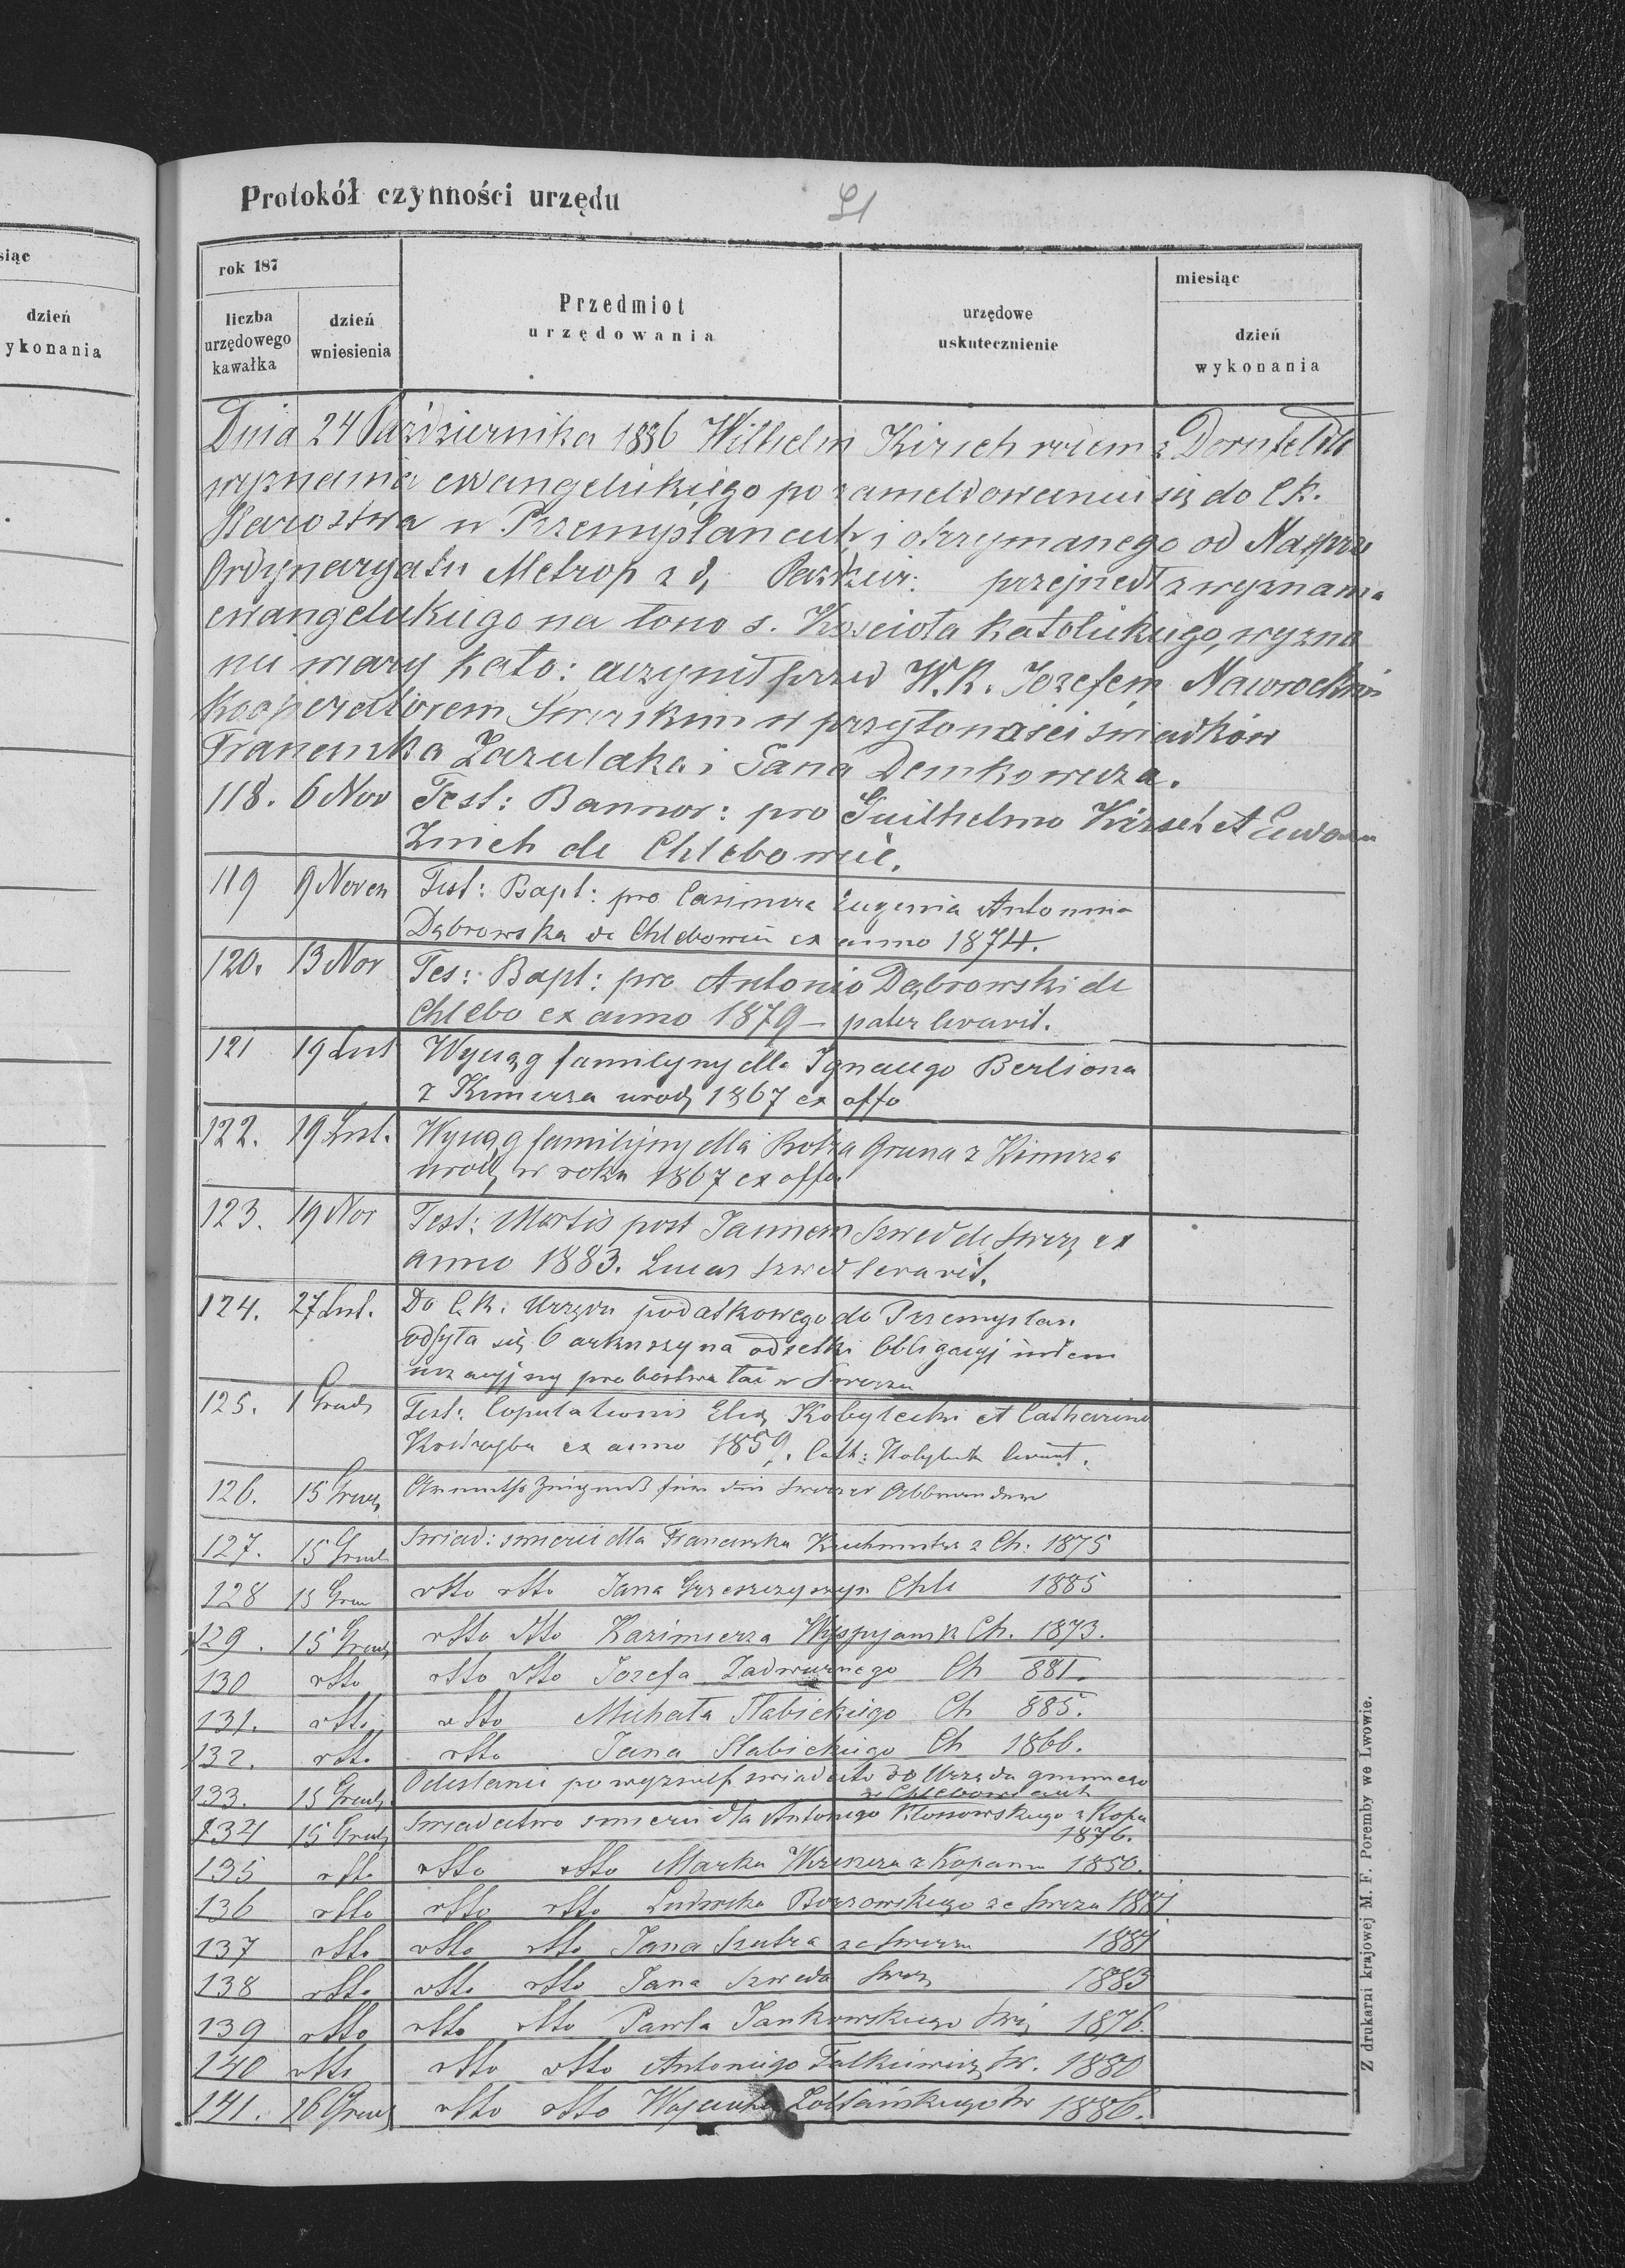 Protokół czynności urzędu
siąc
dzień
ykonania
rok 187
liczba urzędowego kawałka
dzień wniesienia
Przedmiot urzędowania
urzędowe uskutecznienie
miesiąc
dzień wykonania
Dnia 24 Października 1886 Wilhelm Kirsch rodem z Dornfeldu
wyznania ewangelickiego po zameldowaniu się do CK.
Starostwa w Przemyślanach i otrzymanego od Najprze
Ordynaryatu Metrop przejścia z wyznania
ewangelickiego na łono s. Kościoła katolickiego, wyzna
nie wiary kato: uczynił przed W.K. Józefem Nawrockim
Kooperatorem Swirskim w przytomności świadków
Franciszka Zazulaka i Jana Demkowicza.
118. 6 Nov Test: Bannor: pro Guilhelmo Kirsch et
de Chlebowice.
119 9 Noven Test: Bapt: pro Casimira Eugenia Antonina
Dąbrowska de Chlebowic ex anno 1874.
120. 13 Nov Tes: Bapt: pro Antonio Dąbrowski de
Chlebo ex anno 1879 – pater levavit.
121 19 List Wyciąg familyny dla Ignacego Berliona
z Kimirza urodz 1867 ex offo
122. 19 List. Wyciąg familijny dla Gruna z Kimirza
urodz w roku 1867 ex offo
123. 19 Nov Test: Mortis post Joannem Szwed de Swirz ex
anno 1883. Lucas Szwed levavit.
124. 27 List. Do C.K. Urzędu podatkowego do Przemyślan
odsyła się 6 arkuszy na odsetki Obligacyj indem
nizacyjny probostwa łac w Swirzu
125. 1 Grudz Test: Copulationis Kobylecki et Catharina
ex anno 1859. Cath: levavit.
126. 15 Grudz
127. 15 Grud Świad: śmierci dla Franciszka z Ch: 1875
128 15 Gru dtto dtto Jana Grzeszczyszyn Chle 1885
129. 15 Grudz dtto dtto Kazimierza Ch. 1873.
130 dtto dtto dtto Jozefa Zadwurnego Ch 881.
131. dtto dtto Michała Słabickiego Ch 885.
132. dtto dtto Jana Słabickiego Ch 1866.
133. 15 Grudz Odesłanie powyższych świadectw do Urzędu gminnego
w Chlebowicach
134 15 Grudz Swiadectwo śmierci dla Antoniego Kłossowskiego z Kopa
1876.
135 dtto dtto dtto Marka z Kopania 1850.
136 dtto dtto dtto Ludwika Borzowskiego ze Swirza 1881
137 dtto dtto dtto Jana ze Swirza 1881
138 dtto dtto dtto Jana Szweda Swirz 1883
139 dtto dtto dtto Pawła Jankowskiego Swirz 1876.
140 dtto dtto dtto Antoniego Falkiewicz Sw. 1880
141. 16 Grudz dtto dtto Wojciecha Sw 1886.
Z drukarni krajowej M. F. Poremby we Lwowie.